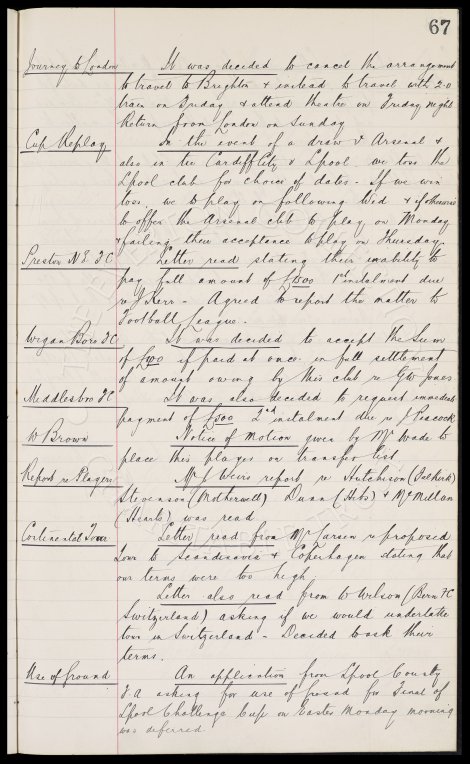 67
Journey to London It was decided to cancel the arrangement
to travel to Brighton & instead to travel with 2-0
train on Friday & attend theatre on Friday night
Return from London on Sunday
Cup Replay In the event of a draw v Arsenal &
also in the Cardiff City v Lpool we toss the
Lpool club for choice of dates - If we win
toss we to play on following Wed & if otherwise
to offer the Arsenal club to play on Monday
& failing their acceptance to play on Thursday.
Preston N E FC Letter read stating their inability to
pay full amount of £1500 1st instalment due
re J Kerr - Agreed to report the matter to
Football League.
Wigan Boro FC It was decided to accept the sum
of if paid at once in full settlement
of amount owing by this club re GW Jones
Middlesbro FC It was also decided to request immediate
payment of £500 2nd instalment due re J Peacock
W Brown Notice of Motion given by Mr Wade to
place this player on transfer list
Report re Players Mr J Weirs report re Hutchison (Falkirk)
Stevenson (Motherwell) Dunn (Hibs) & McMillan
(Hearts) was read
Continental Tour Letter read from Mr Larsen re proposed
tour to Scandinavia & Copenhagen stating that
our terms were too high
Letter also read from W Wilson (Bern FC
Switzerland) asking if we would undertake
tour in Switzerland - Decided to ask their
terms.
Use of Ground An application from Lpool County
F.A asking for use of ground for Final of
Lpool Challenge Cup on Easter Monday morning
was deferred.